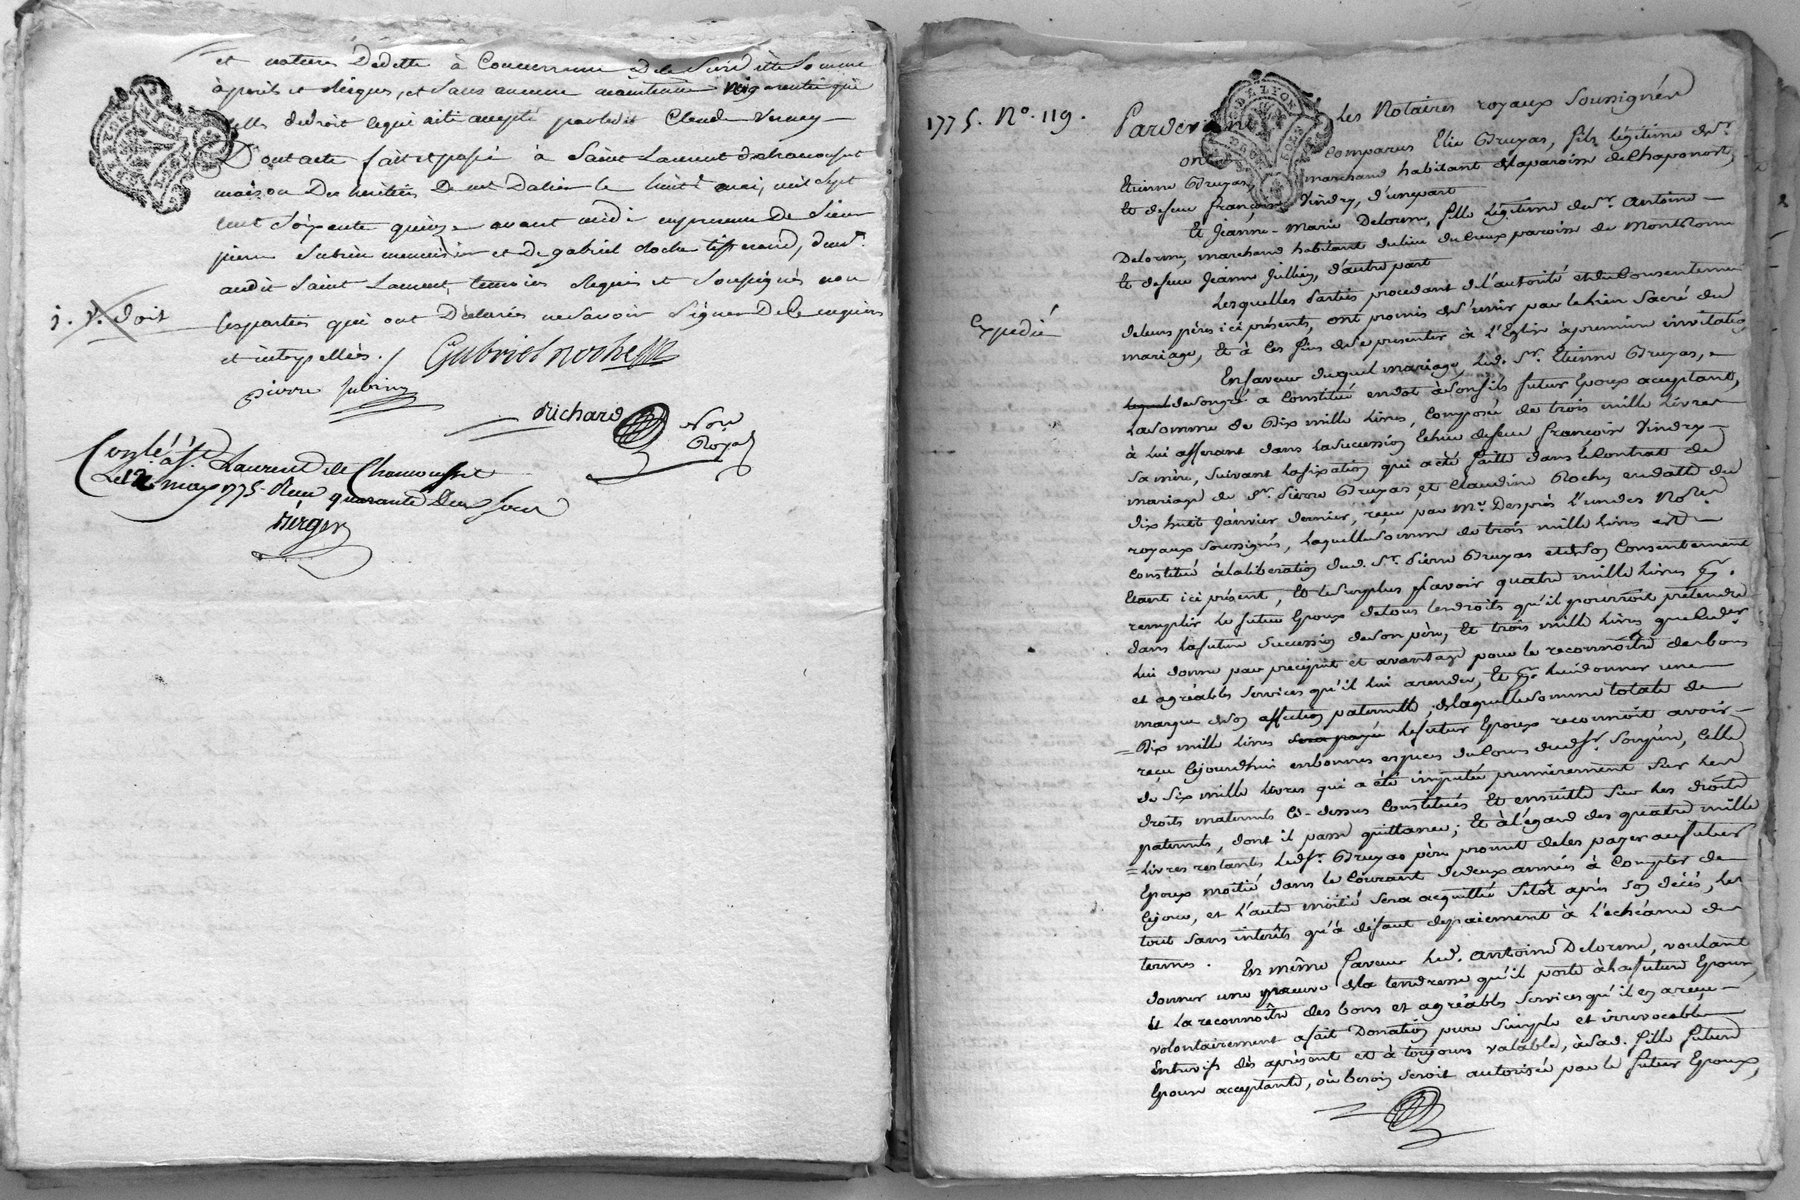 et                     à concurrence de la susditte somme
à perils et risques, et sans aucune maintenue ni garentie que
de droit ce qui a été accepté par ledit Claude Verney
Dont acte fait et passé à Saint Laurent de chamousset
maison des heritiers                 le huit mai, mil sept
cent soixante quinze avant midi en presence de Sieur
pierre                 et de gabriel Roche tisserand, demt.
audit Saint Laurent temoins requis et soussignés non
les parties qui ont déclarés ne savoir signer de ce enquises
et interpellées. /
j. v. doit
Gabriel roche
pierre Subrin
Richard
Nore
Royal
Conlé. à St. Laurent de Chamousset
Le 12 may 1775 Reçu quarante deux sous
Berger
1775. No. 119.
Pardevant les Notaires royaux soussignés
ont comparus Elie Bruyas, fils légitime de Sr.
Etienne Bruyas, marchand habitant de la paroisse de Chaponost,
et de feue françoise Vindry, d'une part
Et Jeanne-Marie Delorme, fille légitime de Sr. Antoine
Delorme, marchand habitant du lieu du Creux paroisse de Montromn
et de feue Jeanne Jullien, d'autre part
Lesquelles Parties procedant de l'autorité et du Consentemen
de leurs pères ici présents, ont promis de s'unir par le lien sacré du
Expedié
mariage, Et à ces fins de se presenter à l'Eglise à premiere invitatio
En faveur duquel mariage, led. Sr. Etienne Bruyas,
lequel de son gré a constitué en dot à son fils futur Epoux acceptant,
la somme de Dix mille livres, composée de trois mille livres
à lui afferant dans la succession échue de feue françoise Vindry
sa mère, suivant la fixation qui a été faitte dans le Contrat de
mariage de Sr. Pierre Bruyas, et Claudine Rochy en datte du
dix huit Janvier dernier, reçu par Me. Despiés l'un des Notes.
royaux soussignés, laquelle somme de trois mille livres est
constitué à la liberation dud. Sr. Pierre Bruyas et de son consentement
étant ici présent, Et le surplus savoir quatre mille livres pr.
remplir le futur Epoux de tous les droits qu'il pourroit prétendre
dans la future succession de son père, Et trois mille livres que led. Sr.
lui donne par preciput et avantage pour le reconnoître des bons
et agréables services qu'il lui a rendu, Et pr. lui donner une
marque de son affection paternelle, de laquelle somme totale de
Dix mille livres sera payée le futur Epoux reconnoit avoir
reçu cejourdhui en bonnes especes du cours dud. Sr. son père, celle
de six mille livres qui a été imputée premierement sur les
droits maternels ci-dessus constitués Et ensuitte sur les droits
paternels, dont il passe quittance; Et à l'égard des quatre mille
livres restants led. Sr. Bruyas père promet de les payer au futur
Epoux moitié dans le courant de deux années à compter de
ce jour, et l'autre moitié sera acquittée sitôt après son décès, le
tout sans interêts qu'à défaut de paiement à l'echéance des
termes. En même faveur led. Antoine Delorme, voulant
donner une preuve de la tendresse qu'il porte à la future Epouse,
et la reconnoître des bons et agréables services qu'il en a reçu
volontairement a fait donation pure simple et irrévocable
entrevifs dès apresent et à toujours valable, à sad. fille future
Epouse acceptante, où besoin seroit autorisée par le futur Epoux,